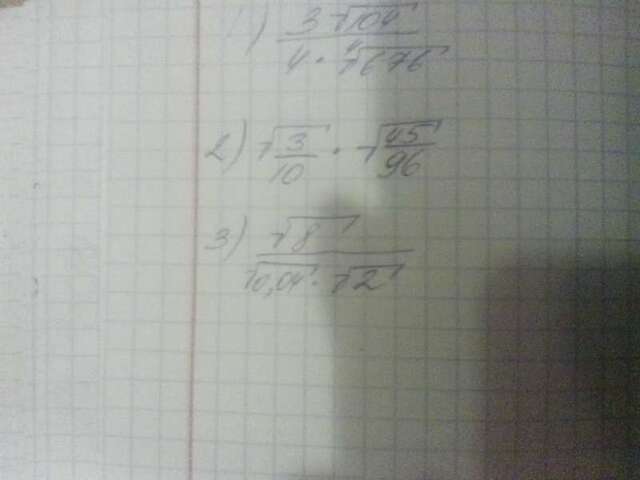 1) 3√104 / 4 · ∜676
2) √(3/10) · √(45/96)
3) √8 / √0,04 · √2